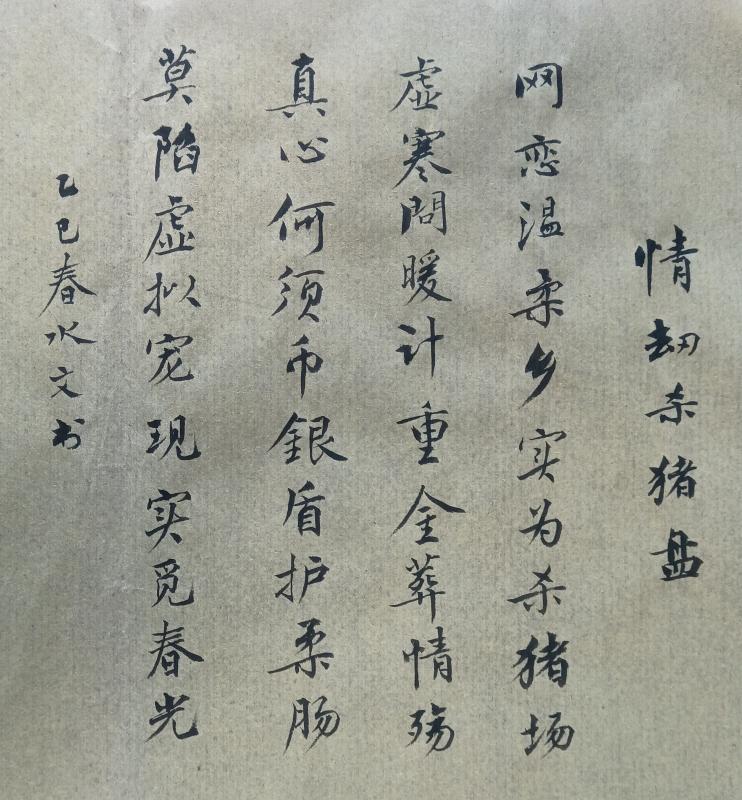 情劫杀猪盘
网恋温柔乡实为杀猪场
虚寒问暖计重金葬情殇
真心何须币銀盾护柔肠
莫陷虚拟宠现实觅春光
乙巳春水文书